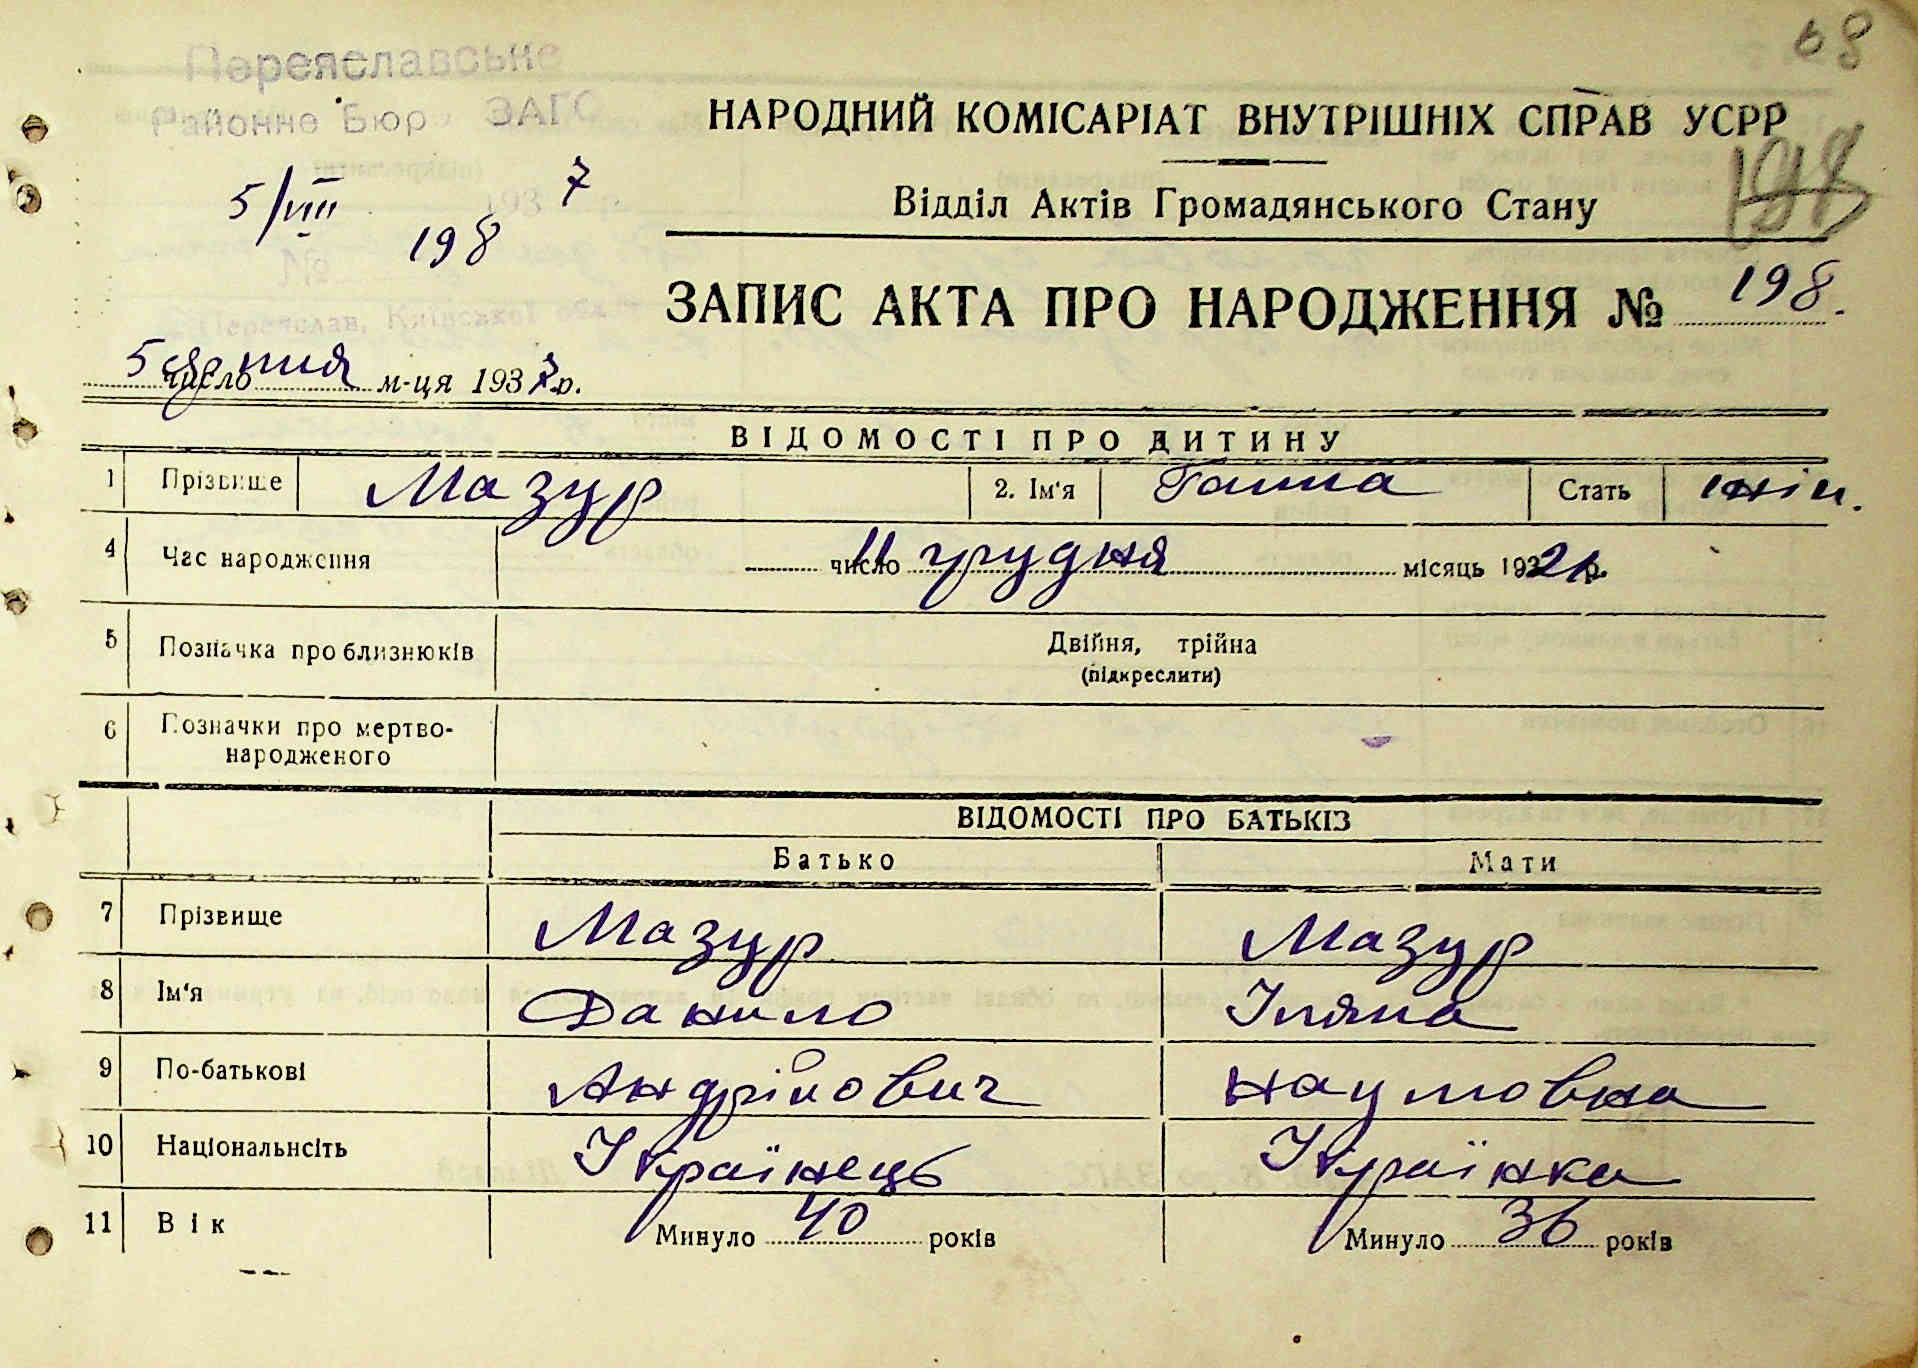 68
Переяславське
Районне Бюро ЗАГС
5/VIII 1937 р.
198
НАРОДНИЙ КОМІСАРІАТ ВНУТРІШНІХ СПРАВ УСРР
Відділ Актів Громадянського Стану
198
ЗАПИС АКТА ПРО НАРОДЖЕННЯ № 198.
м. Переяслав, Київської обл.
5 число серпня м-ця 1937 р.
ВІДОМОСТІ ПРО ДИТИНУ
1 Прізвище Мазур 2. Ім'я Ганна Стать жін.
4 Час народження 11 число грудня місяць 1921 р.
5 Позначка про близнюків Двійня, трійна
(підкреслити)
6 Позначки про мертво-
народженого
ВІДОМОСТІ ПРО БАТЬКІВ
Батько Мати
7 Прізвище Мазур Мазур
8 Ім'я Данило Уляна
9 По-батькові Андрійович Наумовна
10 Національнсіть Українець Українка
11 Вік Минуло 40 років Минуло 36 років